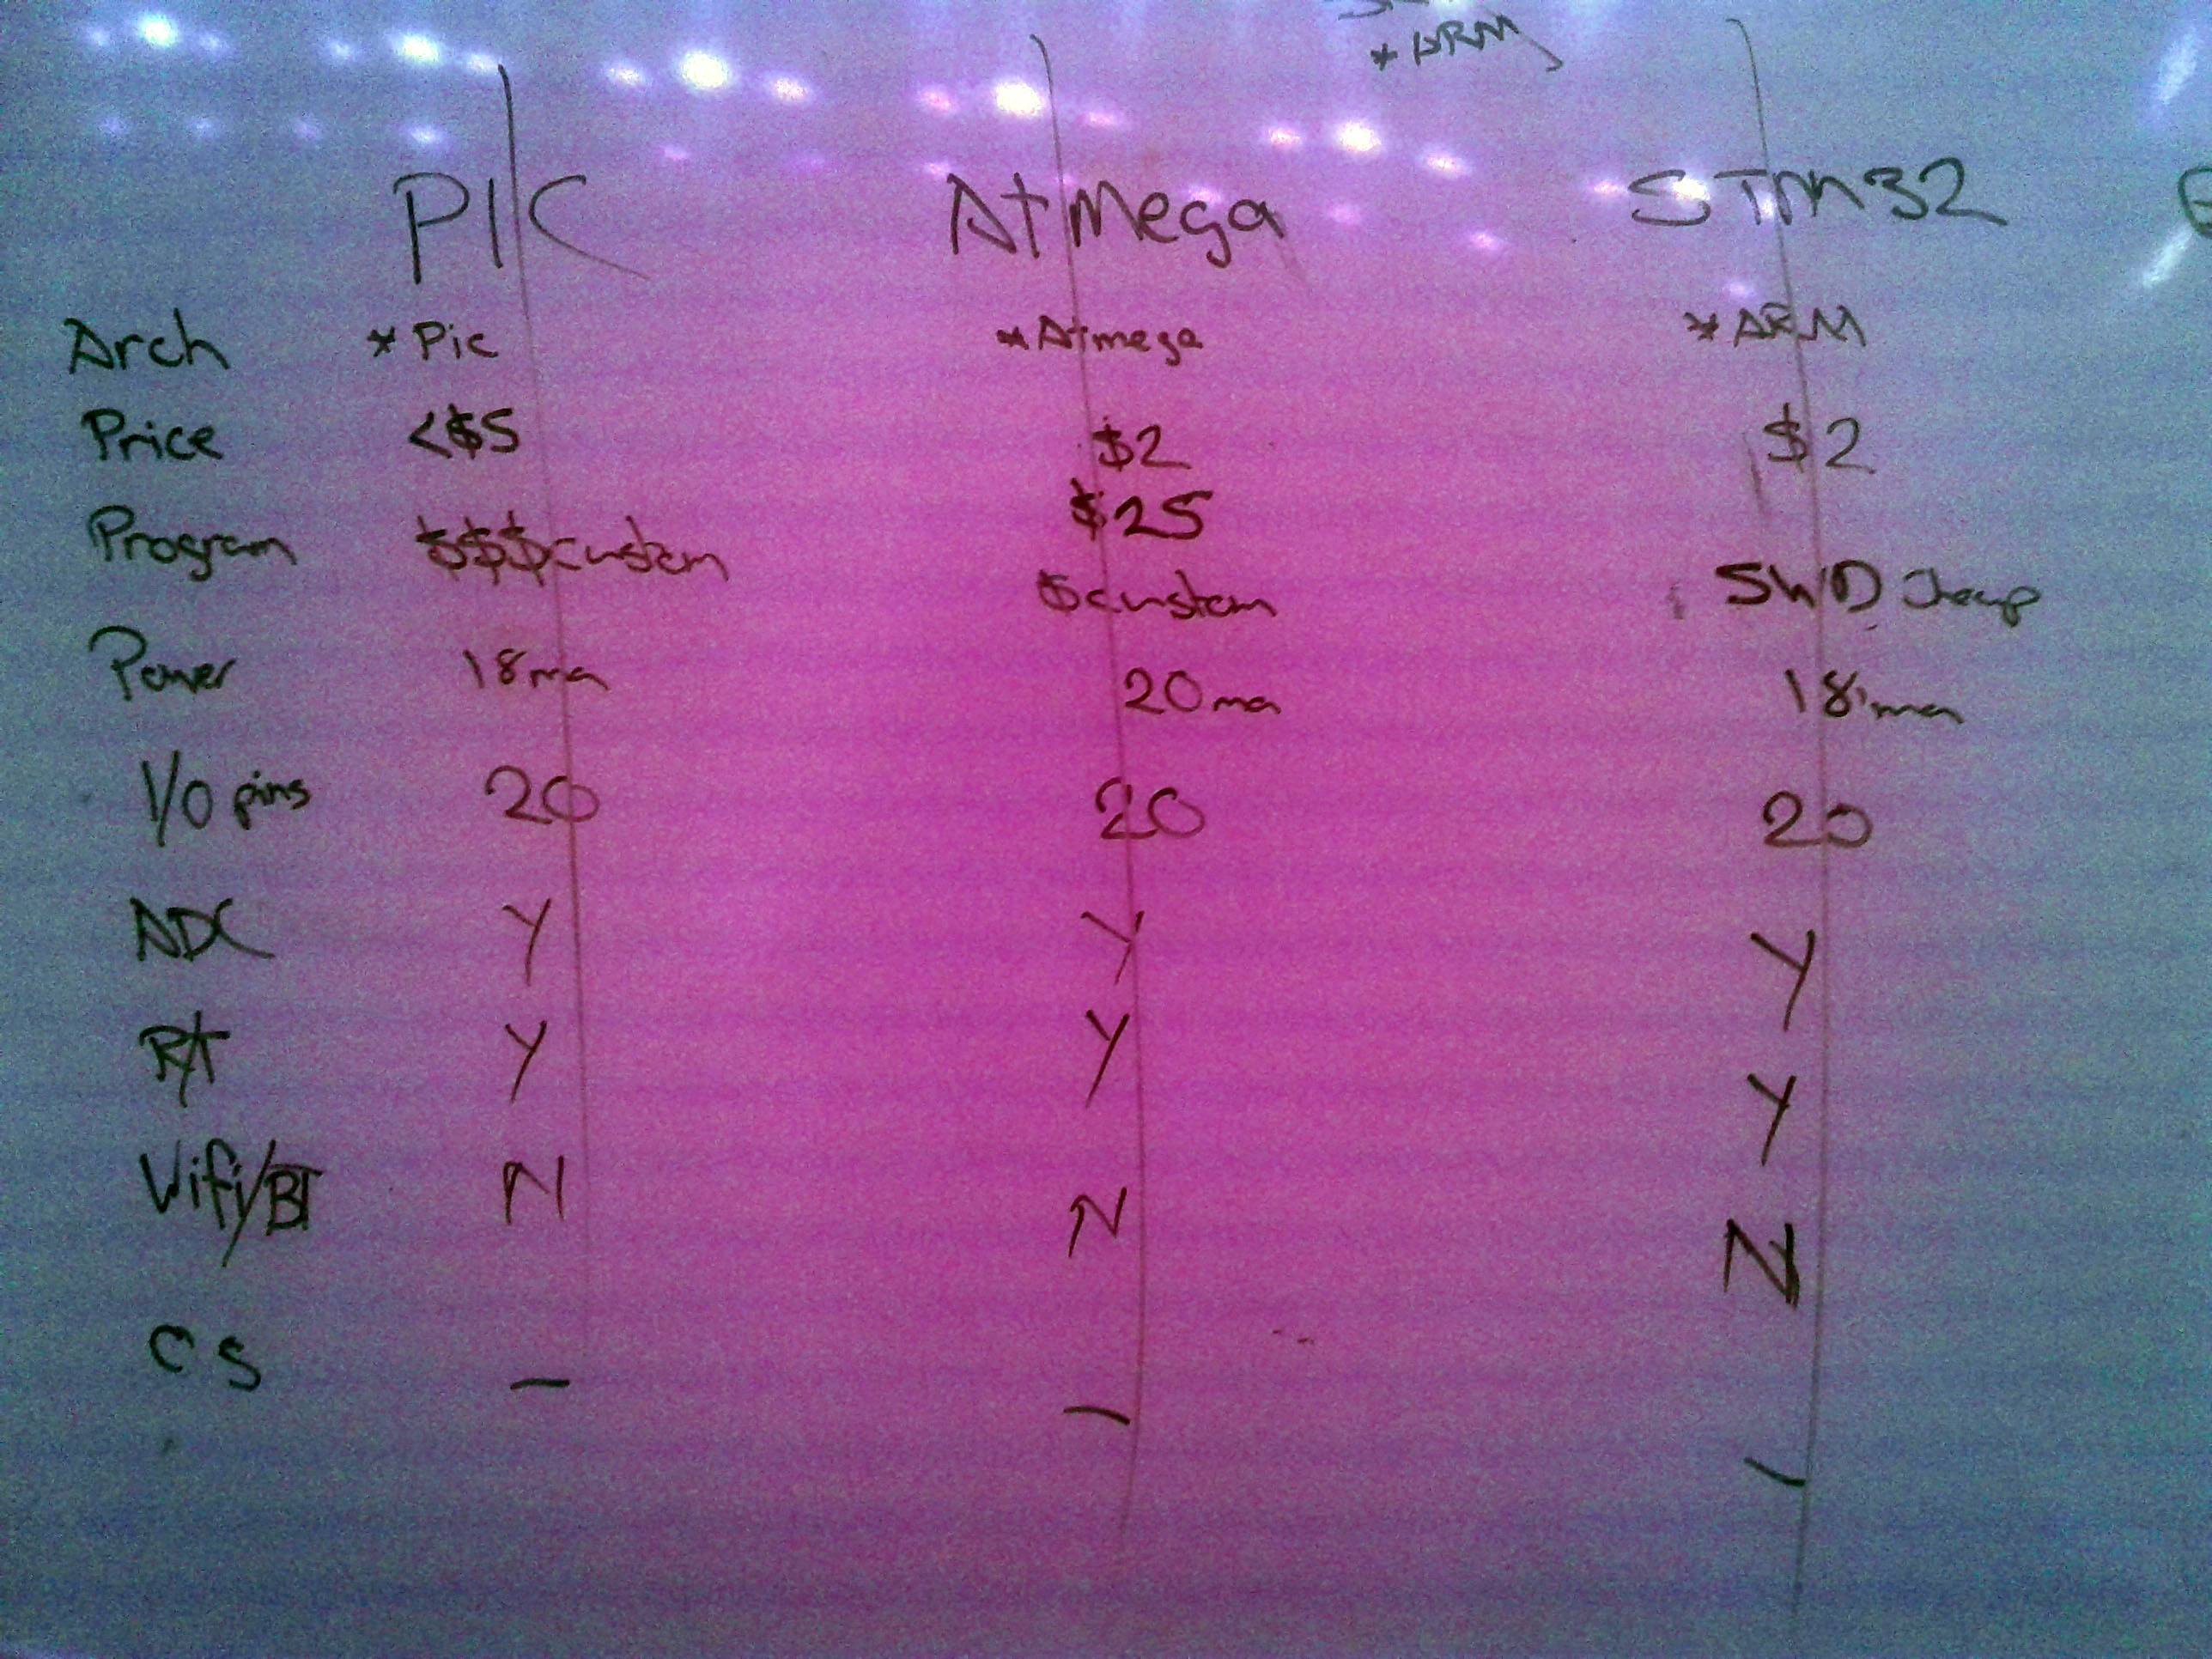 * ARM
PIC ATMega STM32
Arch * Pic * Atmega * ARM
Price <$5 $2 $2
$25
Program $$$custom $custom SWD cheap
Power 18ma 20ma 18ma
I/O pins 20 20 20
ADC Y Y Y
R/T Y Y Y
Wifi/BT N N N
OS – – –